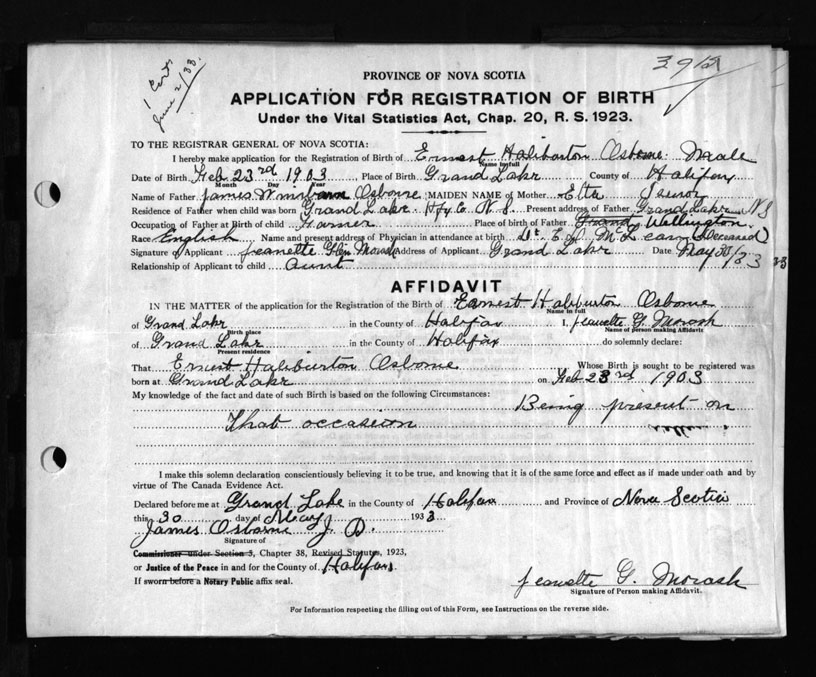 1 Cert
June 2/33.
3912
PROVINCE OF NOVA SCOTIA
APPLICATION FOR REGISTRATION OF BIRTH
Under the Vital Statistics Act, Chap. 20, R. S. 1923.
TO THE REGISTRAR GENERAL OF NOVA SCOTIA:
I hereby make application for the Registration of Birth of Ernest Haliburton Osborne. Male
Name in full
Date of Birth Feb 23rd 1903 Place of Birth Grand Lake County of Halifax
Month Day Year
Name of Father James Osborne MAIDEN NAME of Mother Etta
Residence of Father when child was born Grand Lake. Hfx Co N. S. Present address of Father Grand Lake N S
Occupation of Father at Birth of child Farmer Place of birth of Father Grand Wellington.
Race English Name and present address of Physician in attendance at birth Dr. (Deceased)
Signature of Applicant Jeanette Morash Address of Applicant Grand Lake Date May 30/33 33
Relationship of Applicant to child Aunt
AFFIDAVIT
IN THE MATTER of the application for the Registration of the Birth of Earnest Haliburton Osborne
Name in full
of Grand Lake in the County of Halifax I, Jeanette G. Morash
Birth place Name of person making Affidavit
of Grand Lake in the County of Halifax do solemnly declare:
Present residence
That Ernest Haliburton Osborne Whose Birth is sought to be registered was
born at Grand Lake on Feb 23rd 1903
My knowledge of the fact and date of such Birth is based on the following Circumstances: Being present on
That occasion
I make this solemn declaration conscientiously believing it to be true, and knowing that it is of the same force and effect as if made under oath and by
virtue of The Canada Evidence Act.
Declared before me at Grand Lake in the County of Halifax and Province of Nova Scotia
this 30 day of May 1933
James Osborne J. P.
Signature of
Commissioner under Section 3, Chapter 38, Revised Statutes, 1923,
or Justice of the Peace in and for the County of Halifax.
If sworn before a Notary Public affix seal.
Jeanette G. Morash
Signature of Person making Affidavit.
For Information respecting the filling out of this Form, see Instructions on the reverse side.